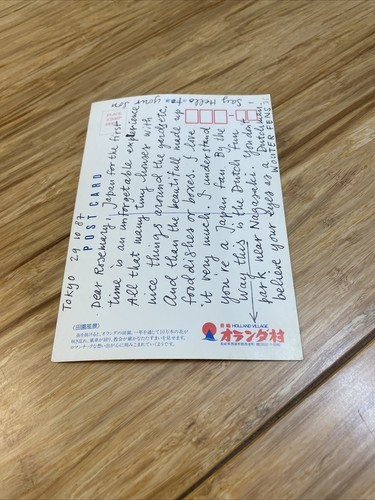 Tokyo 29 10 87
POST CARD
PLACE
STAMP
HERE
Dear Rosemary, Japan for the first
time is an unforgetable experience
All that many tiny houses with
nice things around the gardsetc
And than the beautifull made up
food dishes or boxes. I love
it very much. I understand
you're a Japan fan. By the
Way this is the Dutch fun
park near Nagasaki. You don't
believe your eyes as a Dutchman
WOUTER FENS
Say Hello to your son
(田園風景)
長崎 HOLLAND VILLAGE
オランダ村